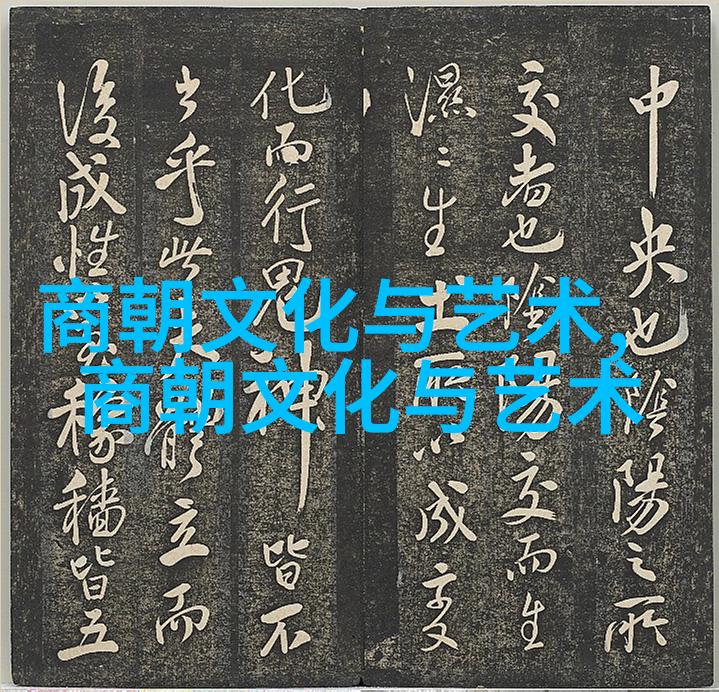 中央也陰陽之所
交者也陰陽交而生
濕〻生土所以成变
化而行鬼神皆不
乎此體立而
後成性稼穡皆五
商朝文化与艺术,
商朝文化与艺术